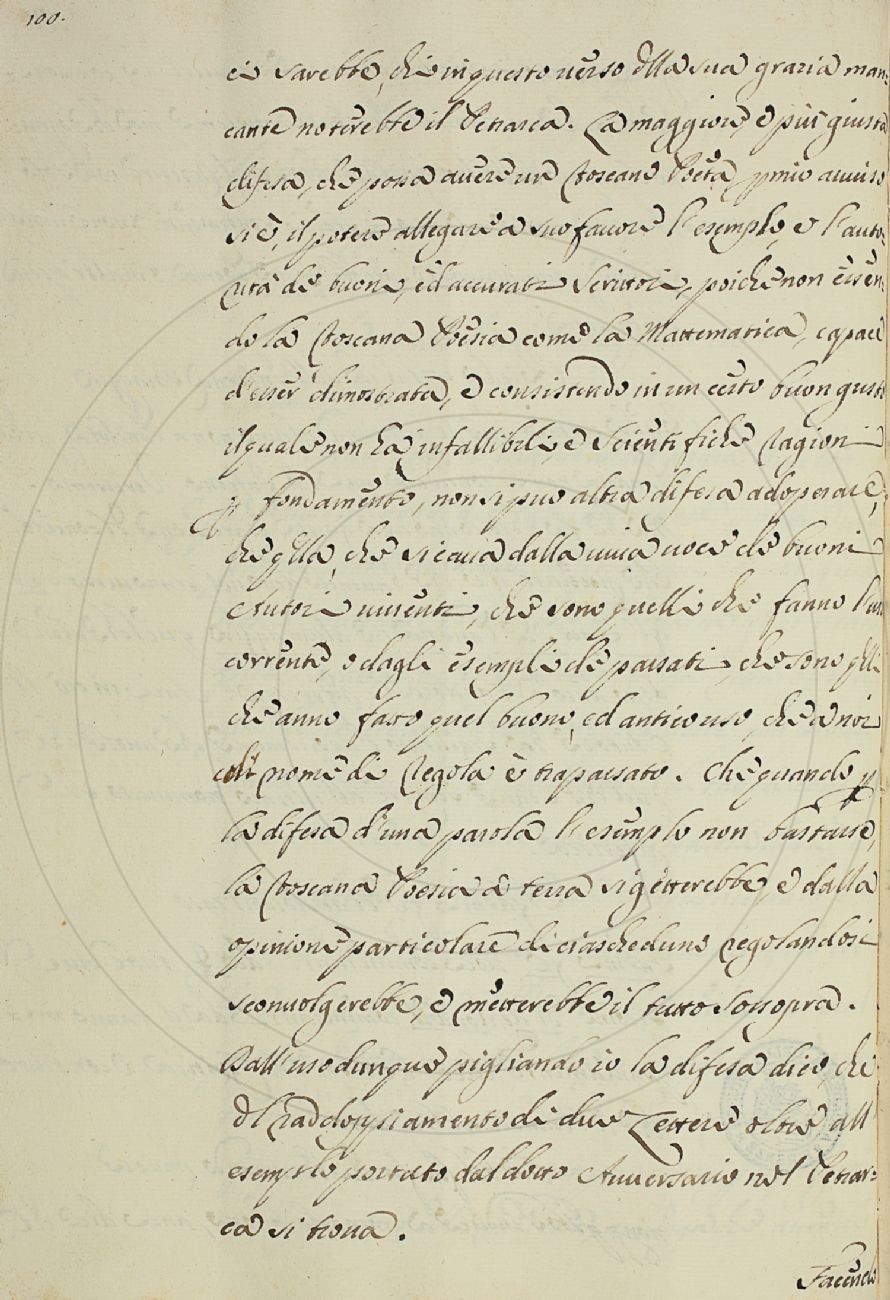 100.
ci sarebbe, che in questo verso dlla sua grazia man:
cante noterebbe il Petrarca. La maggiore, e più giusta
difesa, che possa avere un Toscano Poeta, p mio avviso
si è, il potere allegare a suo favore l'esemplo, e l'auto:
rità de buoni, ed accurati Scrittori, poichè non essen:
do la Toscana Poesia come la Mattematica, capace
d'esser dimostrata, e consistendo in un certo buon gusto
il quale non ha infallibili, e scientifiche ragioni
p fondamento, non si può altra difesa adoperare,
che qlla, che si cava dalla viva voce de buoni
Autori viventi, che sono quelli che fanno l'uso
corrente, o dagli esempli de passati, che sono qlli
che anno fatto quel buono, ed antico uso, che a noi
col nome di Regola è trapassato. Che quando p
la difesa d'una parola l'esemplo non bastasse,
la Toscana Poesia a terra si getterebbe, e dalla
opinione particolare di ciascheduno regolandosi
sconvolgerebbe, e metterebbe il tutto sossopra.
Dall'uso dunque pigliando io la difesa dico, che
dl raddoppiamento di due Lettere oltre all
esemplo portato dal dotto Avversario nel Petrar:
ca si trova.
Facendo